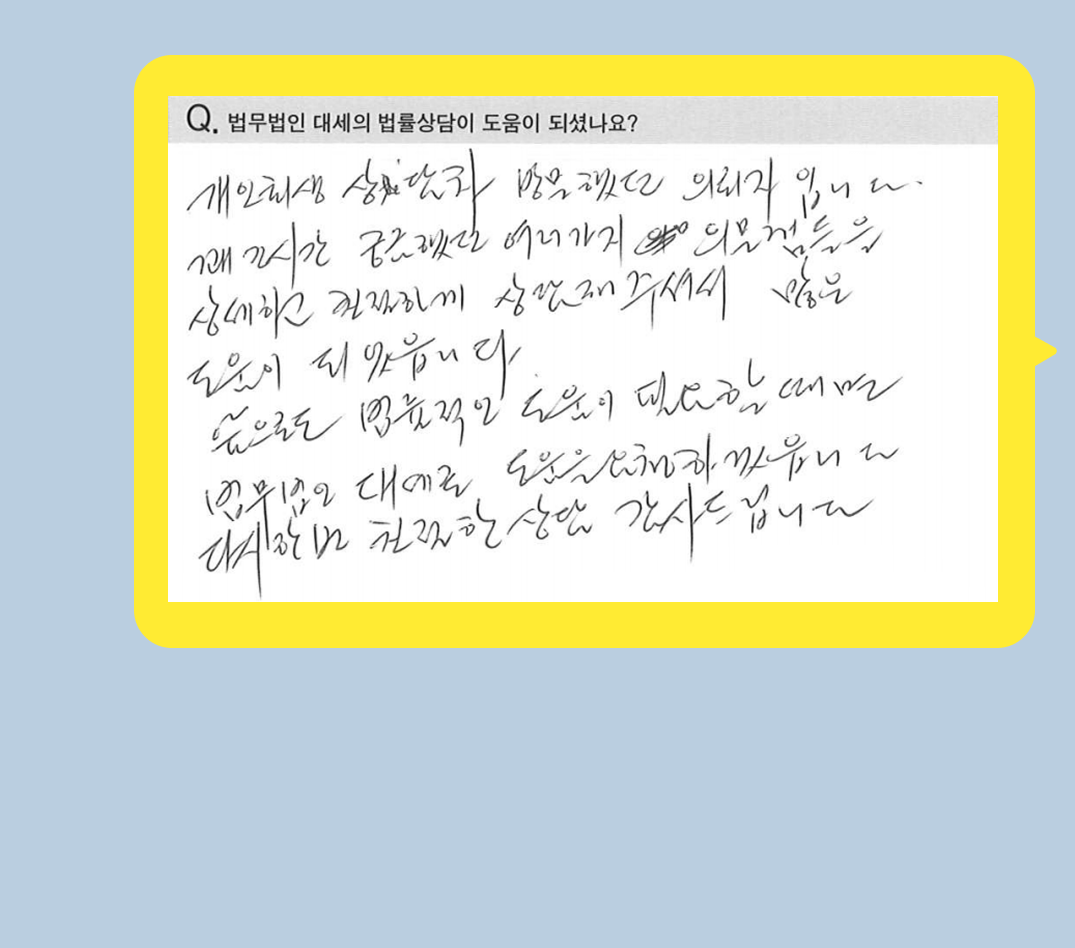 Q. 법무법인 대세의 법률상담이 도움이 되셨나요?
개인회생 상담차 방문했던 의뢰자 입니다.
꽤 긴시간 궁금했던 여러가지 의문점들을
상세하고 친절하게 상담해 주셔서 많은
도움이 되었읍니다.
앞으로도 법률적인 도움이 필요할 때면
법무법인 대세로 도움을 요청하겠읍니다
다시한번 친절한 상담 감사드립니다